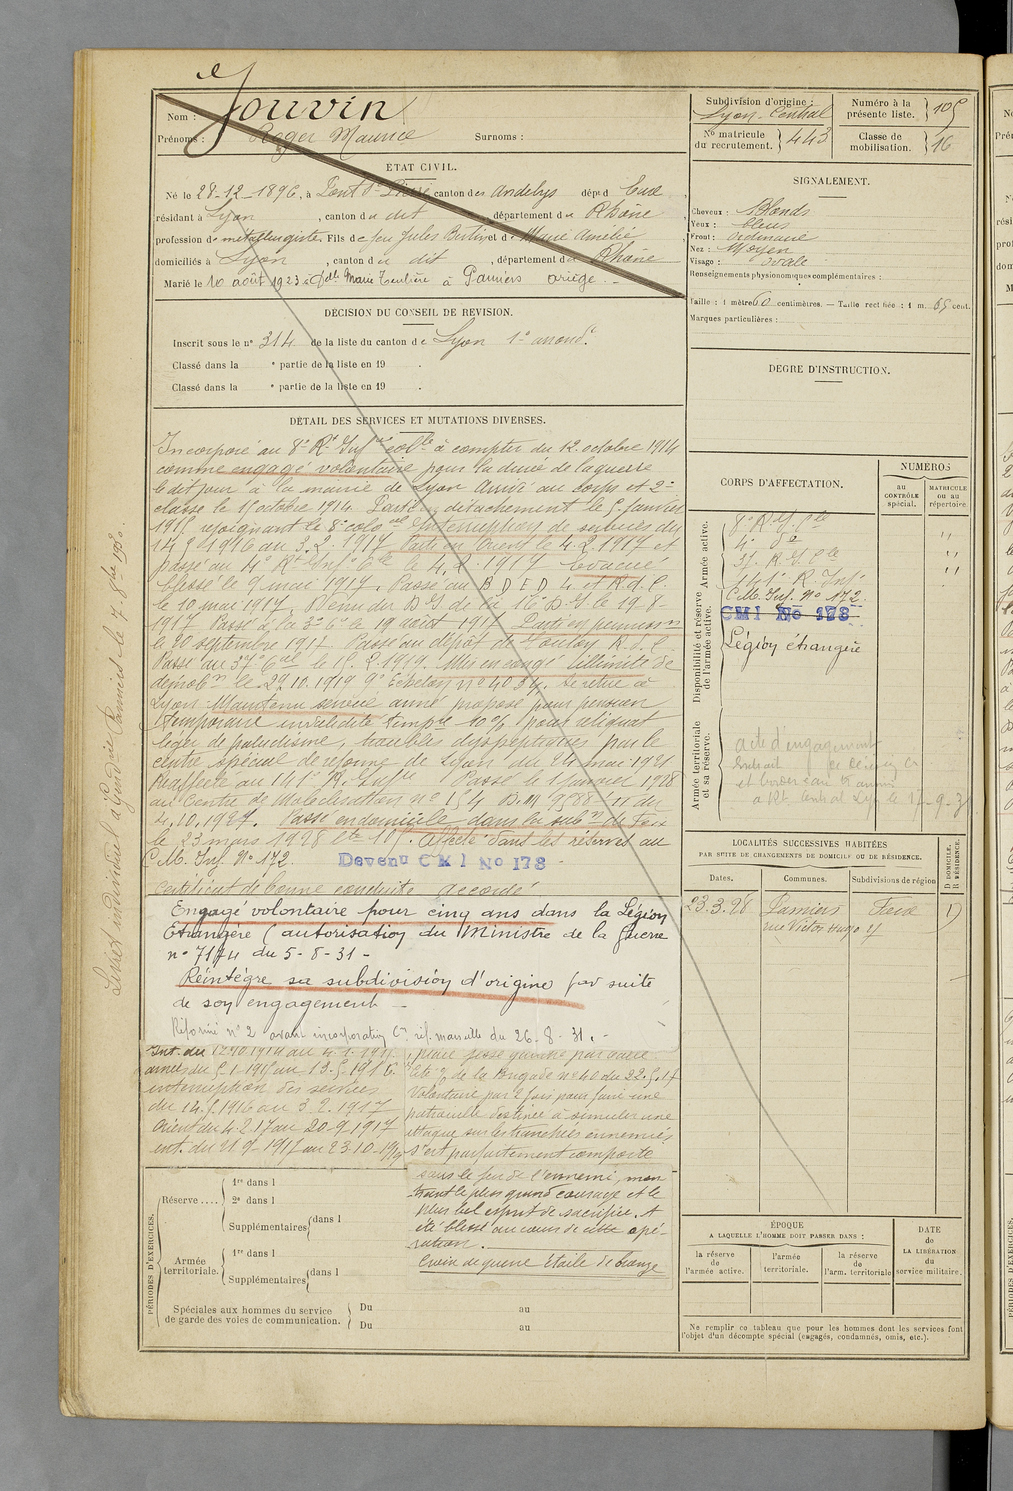 Nom : Jouvin
Prénoms : Roger Maurice Surnoms :
ÉTAT CIVIL.
Né le 28-12-1896, à Pont St Pierre canton des Andelys dépt d Eure
résidant à Lyon, canton du dit, département du Rhône
profession de métallurgiste. Fils de feu Jules Bertin et de Marie Amélie
domiciliés à Lyon, canton du dit, département du Rhône
Marié le 10 août 1923 à Marie à Pamiers Ariège.
DÉCISION DU CONSEIL DE REVISION.
Inscrit sous le n° 314 de la liste du canton de Lyon 1er arrond.t
Classé dans la e partie de la liste en 19 .
Classé dans la e partie de la liste en 19 .
DÉTAIL DES SERVICES ET MUTATIONS DIVERSES.
Incorporé au 8e Rt Inf.rie col.le à compter du 12 octobre 1914
comme engagé volontaire pour la durée de la guerre
le dit jour à la mairie de Lyon. Arrivé au corps et 2e
classe le 15 octobre 1914. Parti en détachement le 5 janvier
1915 rejoignant le 8e colo.al Interruption de services du
14.5.1916 au 3.2.1917 Parti en Orient le 4.2.1917 et
passé au 4e Rt Inf. C.le le 4.2.1917 Evacué
blessé le 9 mai 1917. Passé au B D E D 4 et R.I.C.
le 10 mai 1917. Venu du D.I. de la 16e D.I. le 19-8-
1917 Passé à la 3e Cie le 19 août 1917 Parti en permission
le 20 septembre 1917 Passé au dépôt de Toulon R.I.C.
Passé au 37e C.al le 15.2.1919. Mis en congé illimité de
démob.n le 29.10.1919 9e Echelon n° 4034. Se retire à
Lyon Maintenu service armé proposé pour pension
temporaire invalidité temp.re 10% pour reliquat
léger de paludisme, troubles dyspeptiques par le
centre spécial de réforme de Lyon du 24 mai 1921
Réaffecté au 141e R. Inf.rie Passé le 1 janvier 1928
au Centre de Mobilisation n° 154 D.M 9588/11 du
4.10.1927. Passé en domicile dans la sub.n de Foix
le 23 mars 1928 Affecté dans les réserves au
C.M. Inf. N° 172. Devenu C M I No 178
Certificat de bonne conduite accordé
Engagé volontaire pour cinq ans dans la Légion
Etrangère (autorisation du Ministre de la Guerre
n° 7174 du 5-8-31 -
Réintégre sa subdivision d'origine par suite
de son engagement -
Réformé n° 2 avant incorporation Con réf. Marseille du 26-8-31.-
Int. du 12.10.1914 au 4.1.1915
armées du 5-1-1915 au 13.5.1916.
interruption des services
du 14.5.1916 au 3.2.1917
Orient du 4.2.17 au 20-9.1917
int. du 21 9-1917 au 23.10-1919
, plaie fesse gauche par balle
Cité de la Brigade n° 40 du 22.5.17
Volontaire par 2 fois pour faire une
patrouille destinée à simuler une
attaque sur les tranchées ennemies
s'est parfaitement comporté
sous le feu de l'ennemi, mon
trant le plus grand courage et le
plus bel esprit de sacrifice. A
été blessé au cours de cette opé-
ration.
Croix de guerre étoile de bronze
PÉRIODES D'EXERCICES.
Réserve....
1re dans l
2e dans l
Supplémentaires dans l
Armée territoriale.
1re dans l
Supplémentaires dans l
Spéciales aux hommes du service
de garde des voies de communication.
Du au
Du au
Subdivision d'origine :
Lyon-Central
N° matricule
du recrutement. 443
Numéro à la
présente liste. 105
Classe de
mobilisation. 16
SIGNALEMENT.
Cheveux : Blonds
Yeux : bleus
Front : Ordinaire
Nez : Moyen
Visage : ovale
Renseignements physionomiques complémentaires :
Taille : 1 mètre 60 centimètres. — Taille rectifiée : 1 m. 65 cent.
Marques particulières :
DEGRÉ D'INSTRUCTION.
CORPS D'AFFECTATION.
NUMÉROS
au
CONTRÔLE
spécial.
MATRICULE
ou au
répertoire.
Armée active.
8e R.I.C.le "
4e do "
37 R.I.C.le "
Disponibilité et réserve
de l'armée active.
141e R. Inf.
C.M. Inf. N° 172.
CMI No 178
Légion étrangère
Armée territoriale
et sa réserve.
acte d'engagement
à Rt Central Lyon le 17-9-31
LOCALITÉS SUCCESSIVES HABITÉES
PAR SUITE DE CHANGEMENTS DE DOMICILE OU DE RÉSIDENCE.
Dates. Communes. Subdivisions de région D. DOMICILE. R. RÉSIDENCE.
23.3.28 Pamiers Foix D
rue Victor Hugo 17
ÉPOQUE
A LAQUELLE L'HOMME DOIT PASSER DANS :
la réserve
de
l'armée active.
l'armée
territoriale.
la réserve
de
l'arm. territoriale
DATE
de
LA LIBÉRATION
du
service militaire.
Ne remplir ce tableau que pour les hommes dont les services font
l'objet d'un décompte spécial (engagés, condamnés, omis, etc.).
Livret individuel à Gend.rie Pamiers le 7-8.bre 1930.